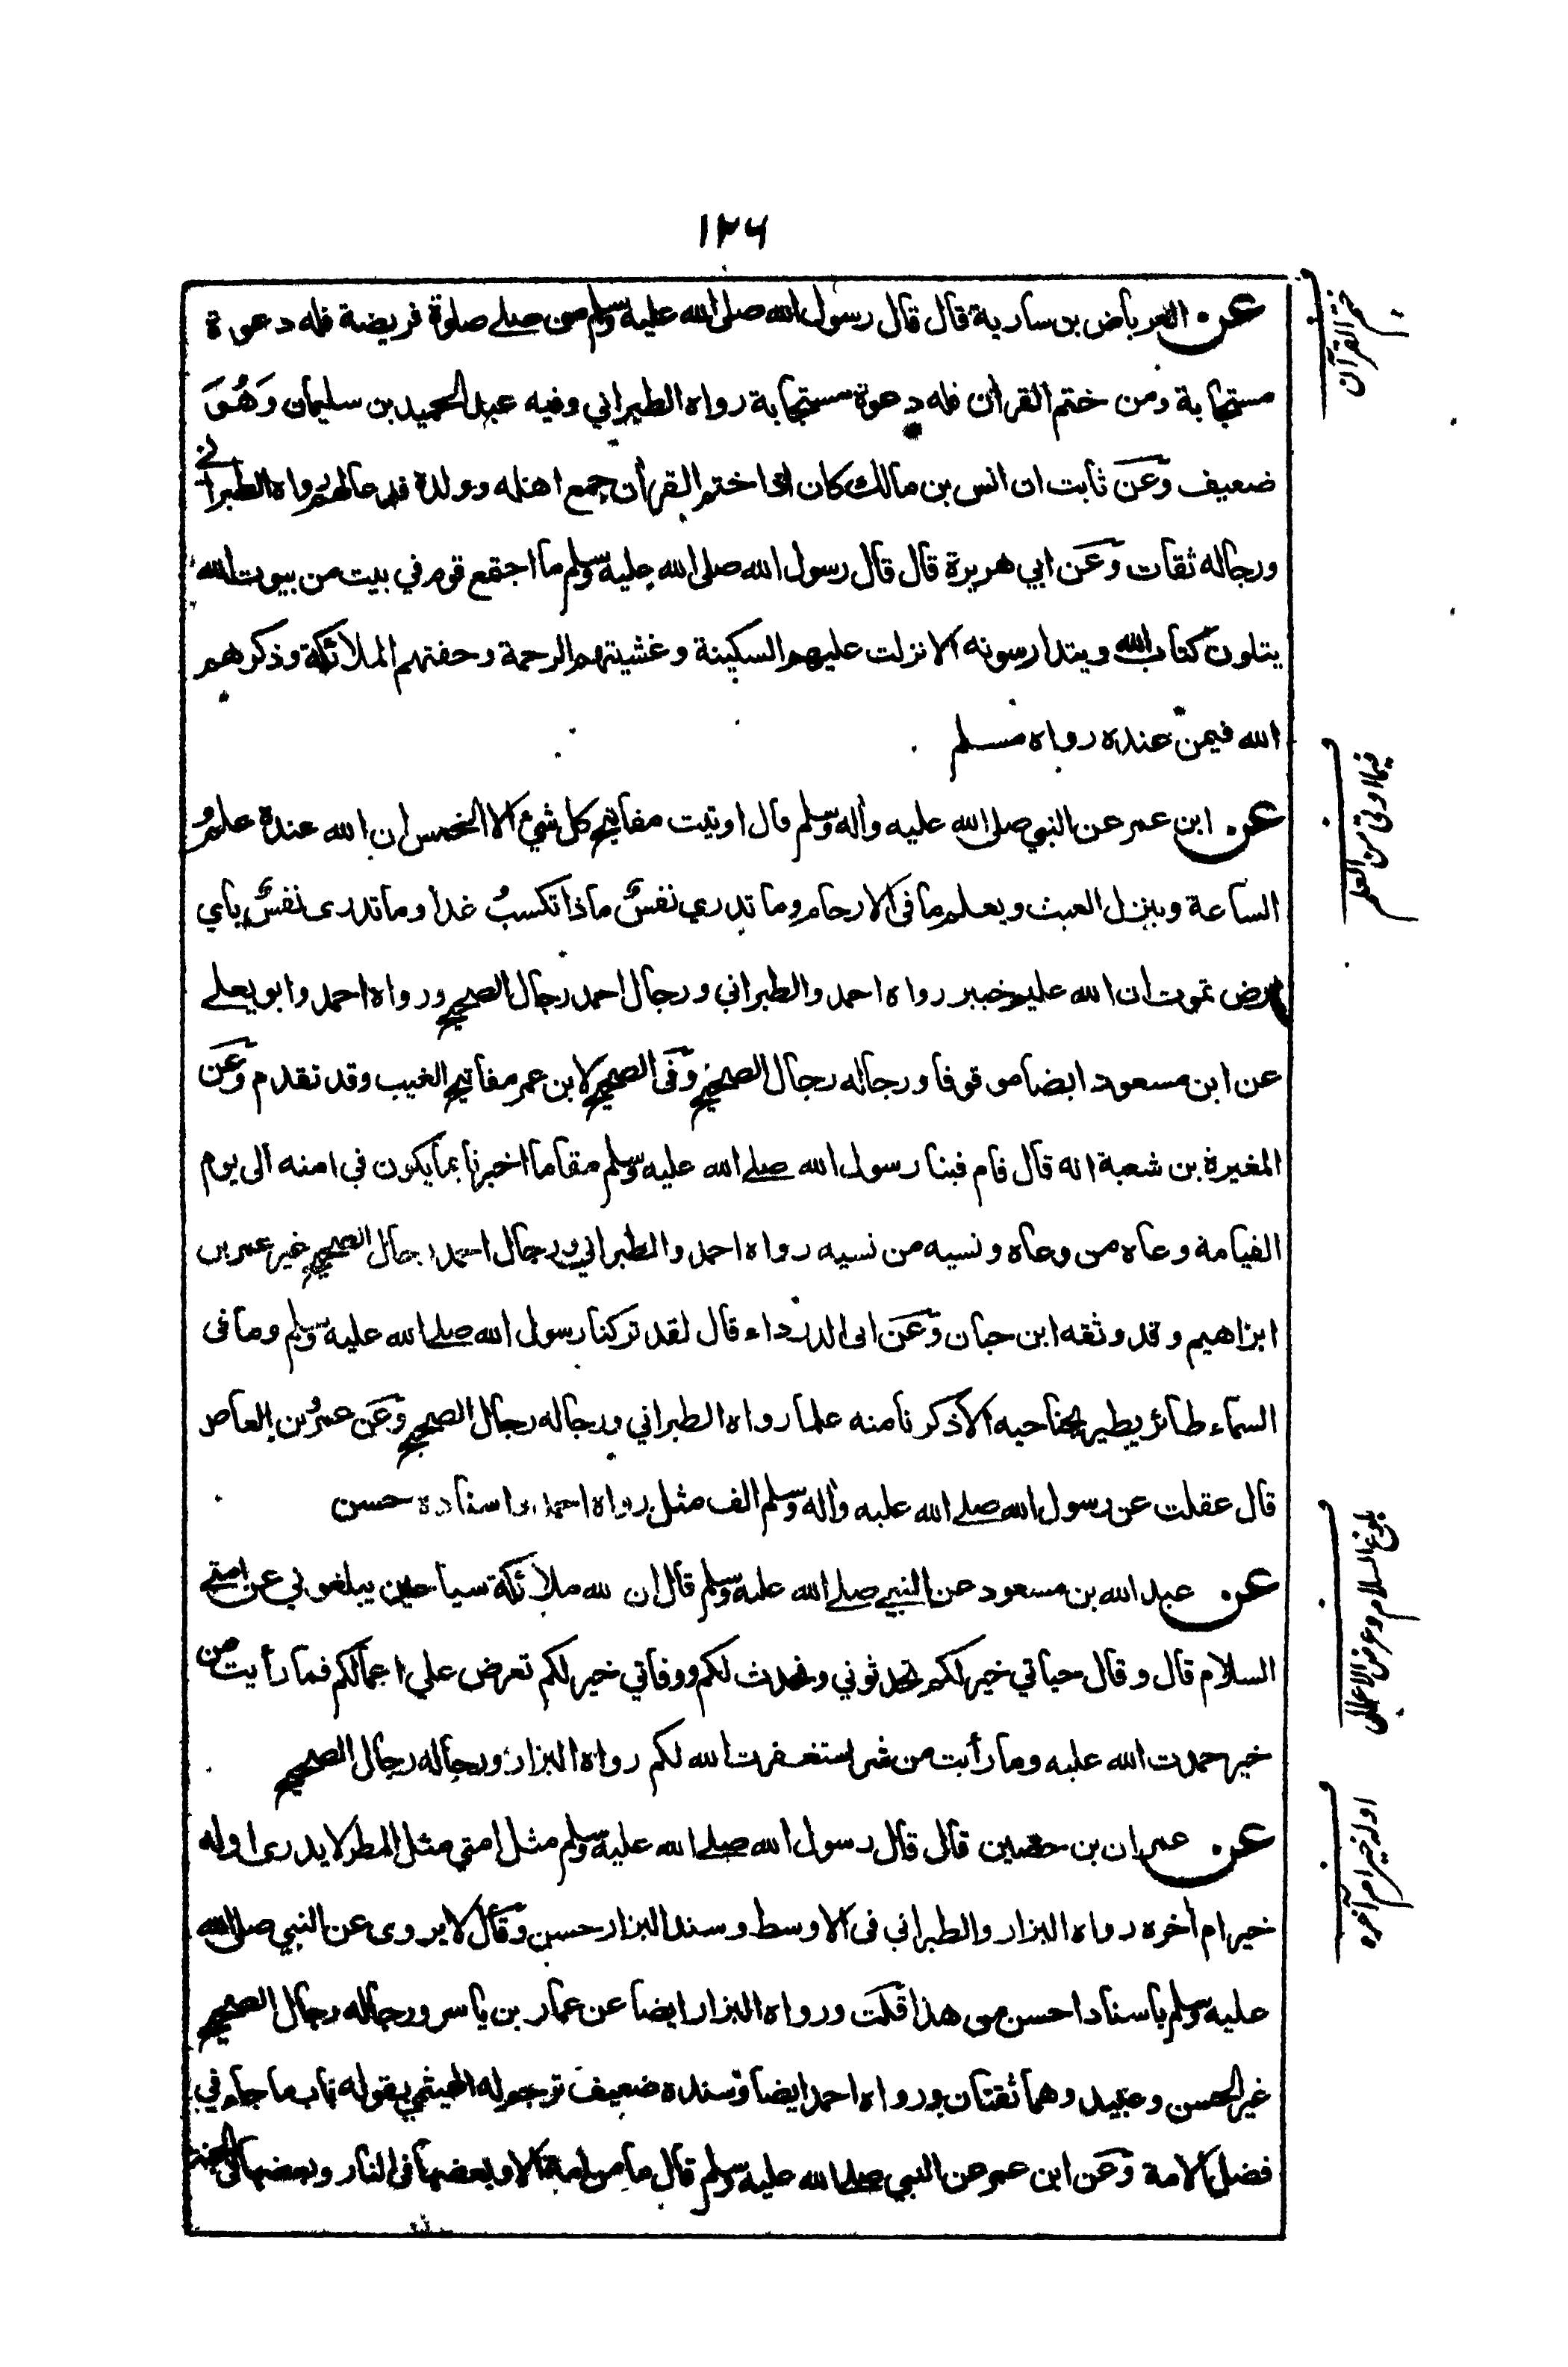 ١٢٦
عن العرباض بن سارية قال قال رسول الله صلى الله عليه وسلم من صلے صلوة فريضة فله دعوة
مستجابة ومن ختم القرأن فله دعوة مستجابة رواه الطبراني وفيه عبد الحميد بن سليمان وَهُوَ
ضعيف وعن ثابت ان انس بن مالك كان اذا ختم القرأن جمع اهله وولده فدعا لهم رواه الطبراني
ورجاله ثقات وعن ابي هريرة قال قال رسول الله صلى الله عليه وسلم ما اجتمع قوم في بيت من بيوت الله
يتلون كتاب الله ويتدارسونه الا نزلت عليهم السكينة وغشيتهم الرحمة وحفتهم الملائكة وذكرهم
الله فيمن عنده رواه مسلم
عن ابن عمر عن النبي صلى الله عليه وأله وسلم قال اوتيت مفاتيح كل شيء الا الخمس ان الله عنده علم
الساعة وينزل الغيث ويعلم ما فى الارحام وما تدري نفسٌ ماذا تكسبُ غدا وما تدرى نفسٌ باي
ارض تموت ان الله عليم خبير رواه احمد والطبراني ورجال احمد رجال الصحيح ورواه احمد وابو يعلے
عن ابن مسعود ايضا موقوفا ورجاله رجال الصحيح وفى الصحيح لابن عمر مفاتيح الغيب وقد تقدم وعن
المغيرة بن شعبة انه قال قام فينا رسول الله صلے الله عليه وسلم مقاما اخبرنا بما يكون في امته الى يوم
القيامة وعاه من وعاه ونسيه من نسيه رواه احمد والطبراني ورجال احمد رجال الصحيح غير عمر بن
ابراهيم وقد وثقه ابن حبان وعن ابى الدرداء قال لقد تركنا رسول الله صلے الله عليه وسلم وما فى
السماء طائر يطير بجناحيه الا ذكرنا منه علما رواه الطبراني ورجاله رجال الصحيح وعن عمرو بن العاص
قال عقلت عن رسول الله صلے الله عليه وأله وسلم الف مثل رواه احمد واسناده حسن
عن عبد الله بن مسعود عن النبي صلے الله عليه وسلم قال ان لله ملائكة سياحين يبلغوني عن امتي
السلام قال وقال حياتي خير لكم تحدثوني ونحدث لكم ووفاتي خير لكم تعرض علي اعمالكم فما رأيت من
خير حمدت الله عليه وما رأيت من شر استغفرت الله لكم رواه البزار ورجاله رجال الصحيح
عن عمران بن حصين قال قال رسول الله صلے الله عليه وسلم مثل امتي مثل المطر لا يدرى اوله
خير ام أخره رواه البزار والطبراني فى الاوسط وسند البزار حسن وقال لا يروى عن النبي صلى الله
عليه وسلم باسناد احسن من هذا قلت ورواه البزار ايضا عن عمار بن ياسر ورجاله رجال الصحيح
غير الحسن وعبيد وهما ثقتان ورواه احمد ايضا وسنده ضعيف ترجم له الهيثمي بقوله باب ما جاء في
فضل الامة وعن ابن عمر عن النبي صلے الله عليه وسلم قال ما من امة الا وبعضها فى النار وبعضها فى الجنة
ختم القرأن
فيما اوتي من العلم
بلوغ السلام وعرض الاعمال
اوله خير ام أخره